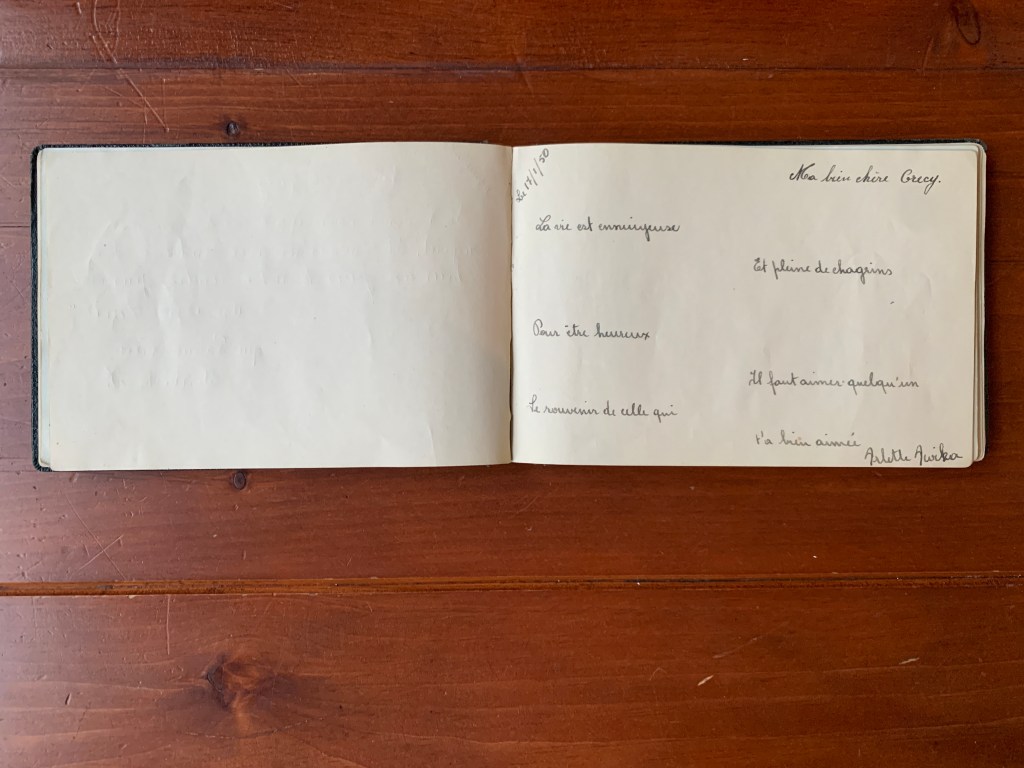 Le 17/1/50
Ma bien chère Grecy.
La vie est ennuiyeuse
Et pleine de chagrins
Pour être heureux
Il faut aimer quelqu'un
Le souvenir de celle qui
t'a bien aimée
Arlette Awika